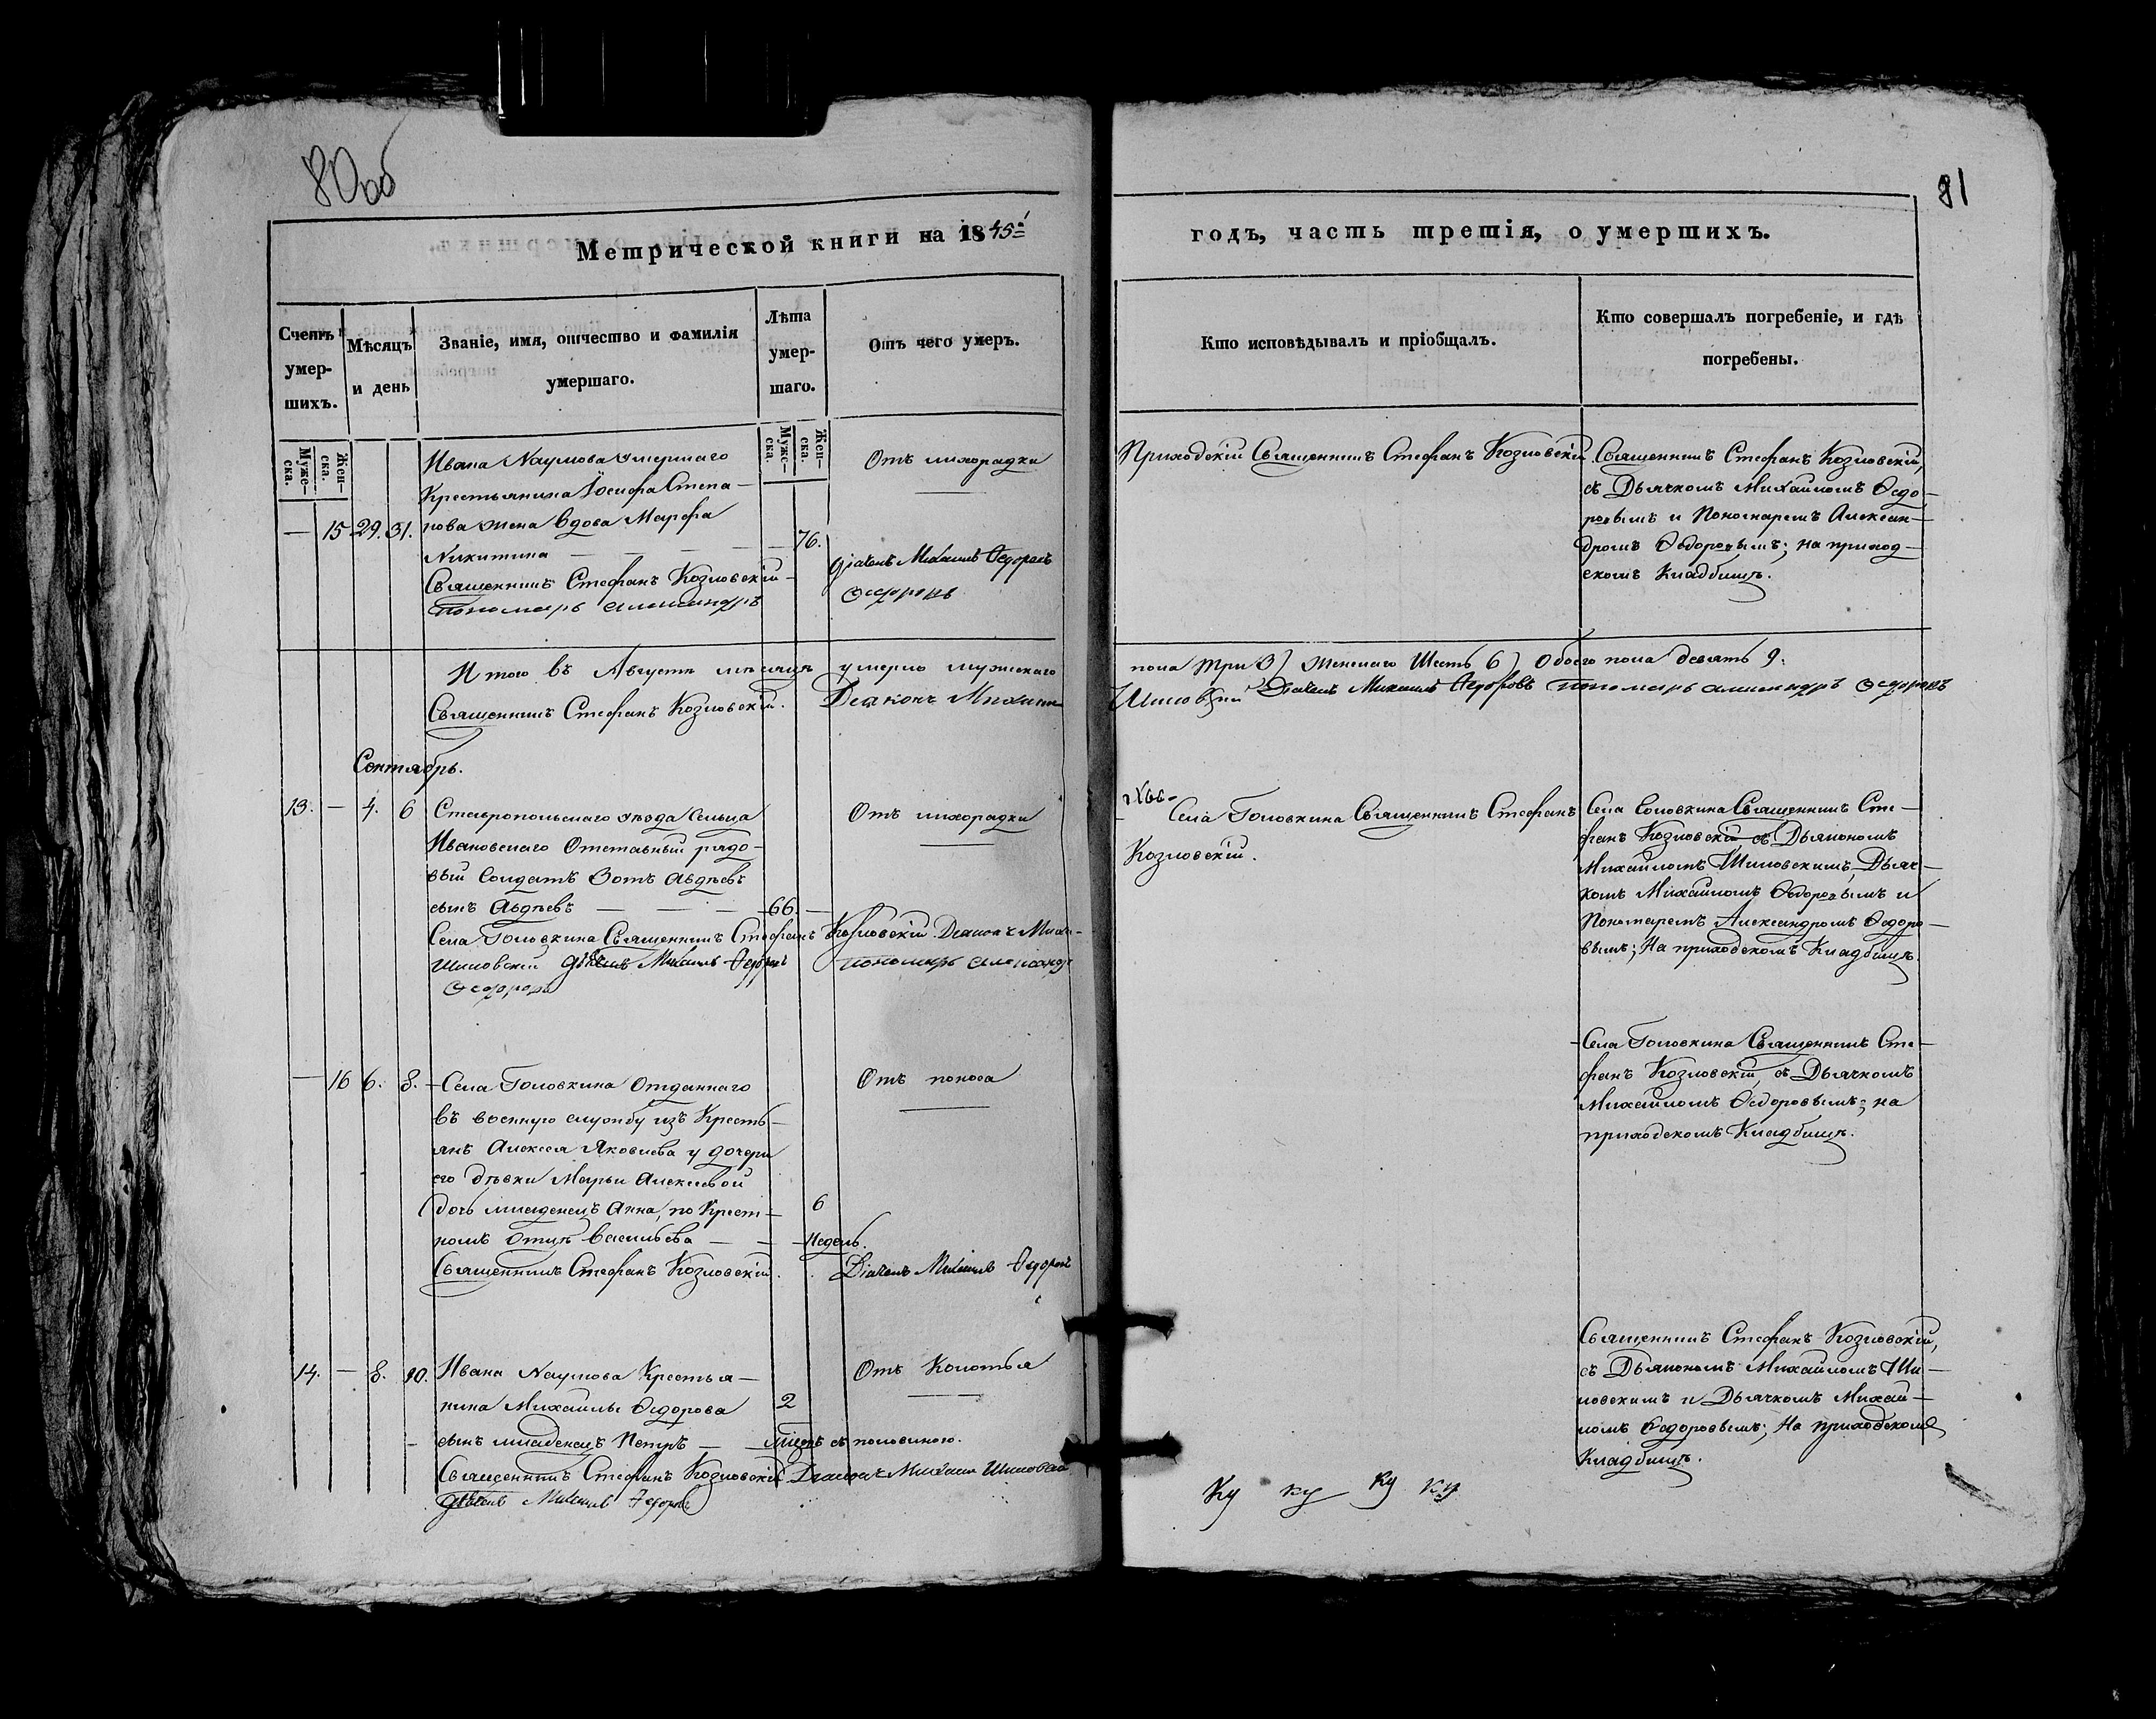 80об
81
Метрической книги на 1845й
годъ, часть третія, о умершихъ.
Счетъ умер-шихъ.
Мѣсяцъ и день
Званіе, имя, отчество и фамилія умершаго.
Лѣта умер-шаго.
Отъ чего умеръ.
Кто исповѣдывалъ и пріобщалъ.
Кто совершалъ погребеніе, и гдѣ погребены.
Муже-ска.
Жен-ска.
Муже-ска.
Жен-ска.
Ивана Наумова умершаго
Крестьянина Іосифа Степа-
— 15 29. 31. нова жена вдова Марфа
Никитина — — — — 76.
Отъ лихорадки
Священникъ Стефанъ Козловскій
дьячекъ Михаилъ Федоровъ
пономарь Александръ
Федоровъ
Приходскій Священникъ Стефанъ Козловскій
Священникъ Стефанъ Козловскій,
съ Дьячкомъ Михайломъ Ѳедо-
ровымъ и Пономаремъ Алексан-
дромъ Ѳедоровымъ; на приход-
скомъ Кладбищѣ.
Итого въ Августѣ мѣсяцѣ умерло мужескаго
пола три 3) женскаго Шесть 6) Обоего пола девять 9.
Священникъ Стефанъ Козловскій. Діаконъ Михаилъ
Шиловскій Дьячекъ Михаилъ Федоровъ пономарь Александръ Федоровъ
Сентябрь.
13. — 4. 6 Ставропольскаго уѣзда Сельца
Ивановскаго Отставный рядо-
вый Солдатъ Зотъ Авдѣевъ
сынъ Авдѣевъ — — — 66. —
Отъ лихорадки
Села Головкина Священникъ Стефанъ Козловскій. Діаконъ Михаи-
Шиловскій дьячекъ Михаилъ Федоровъ пономарь Александръ
Федоровъ
Села Головкина Священникъ Стефанъ
Козловскій.
Села Головкина Священникъ Сте-
фанъ Козловскій съ Дьякономъ
Михайломъ Шиловскимъ, Дьяч-
комъ Михайломъ Ѳедоровымъ и
Пономаремъ Александромъ Ѳедоро-
вымъ; На приходскомъ Кладбищѣ.
— 16 6. 8. Села Головкина Отданнаго
въ военную службу изъ Кресть-
янъ Алексея Яковлева у дочери
его дѣвки Марьи Алексѣевой
дочь младенецъ Анна, по Крест-
номъ Отцѣ Васильева — —
6
Недель.
Отъ поноса
Священникъ Стефанъ Козловскій.
Дьячекъ Михаилъ Федоровъ
Села Головкина Священникъ Сте-
фанъ Козловскій, съ Дьячкомъ
Михайломъ Ѳедоровымъ; на
приходскомъ Кладбищѣ.
14. — 8. 10. Ивана Наумова Крестья-
нина Михаилы Ѳедорова
сынъ младенецъ Петръ —
2
мѣсяцъ съ половиною.
Отъ Колотья
Священникъ Стефанъ Козловскій Діаконъ Михаилъ Шиловскій
дьячекъ Михаилъ Федоровъ
Священникъ Стефанъ Козловскій,
съ Дьякономъ Михайломъ Ши-
ловскимъ и Дьячкомъ Михай-
ломъ Ѳедоровымъ; На приходскомъ
Кладбищѣ.
Ку ку ку ку